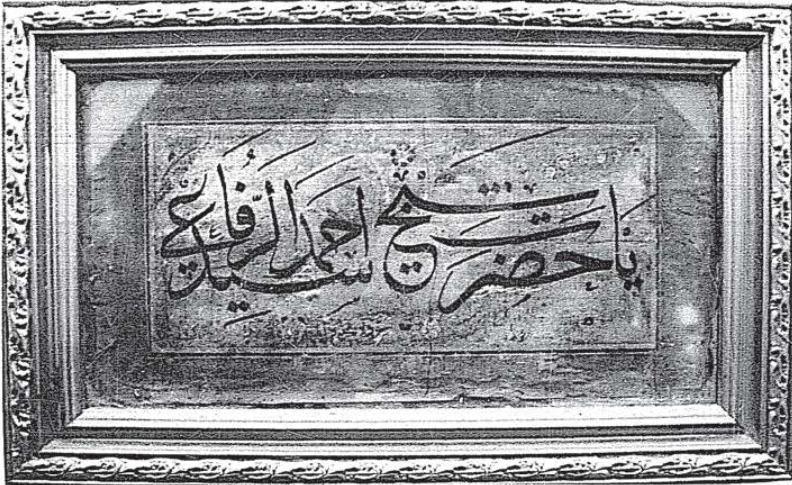 يا حضرت شيخ سيد احمد الرفاعي